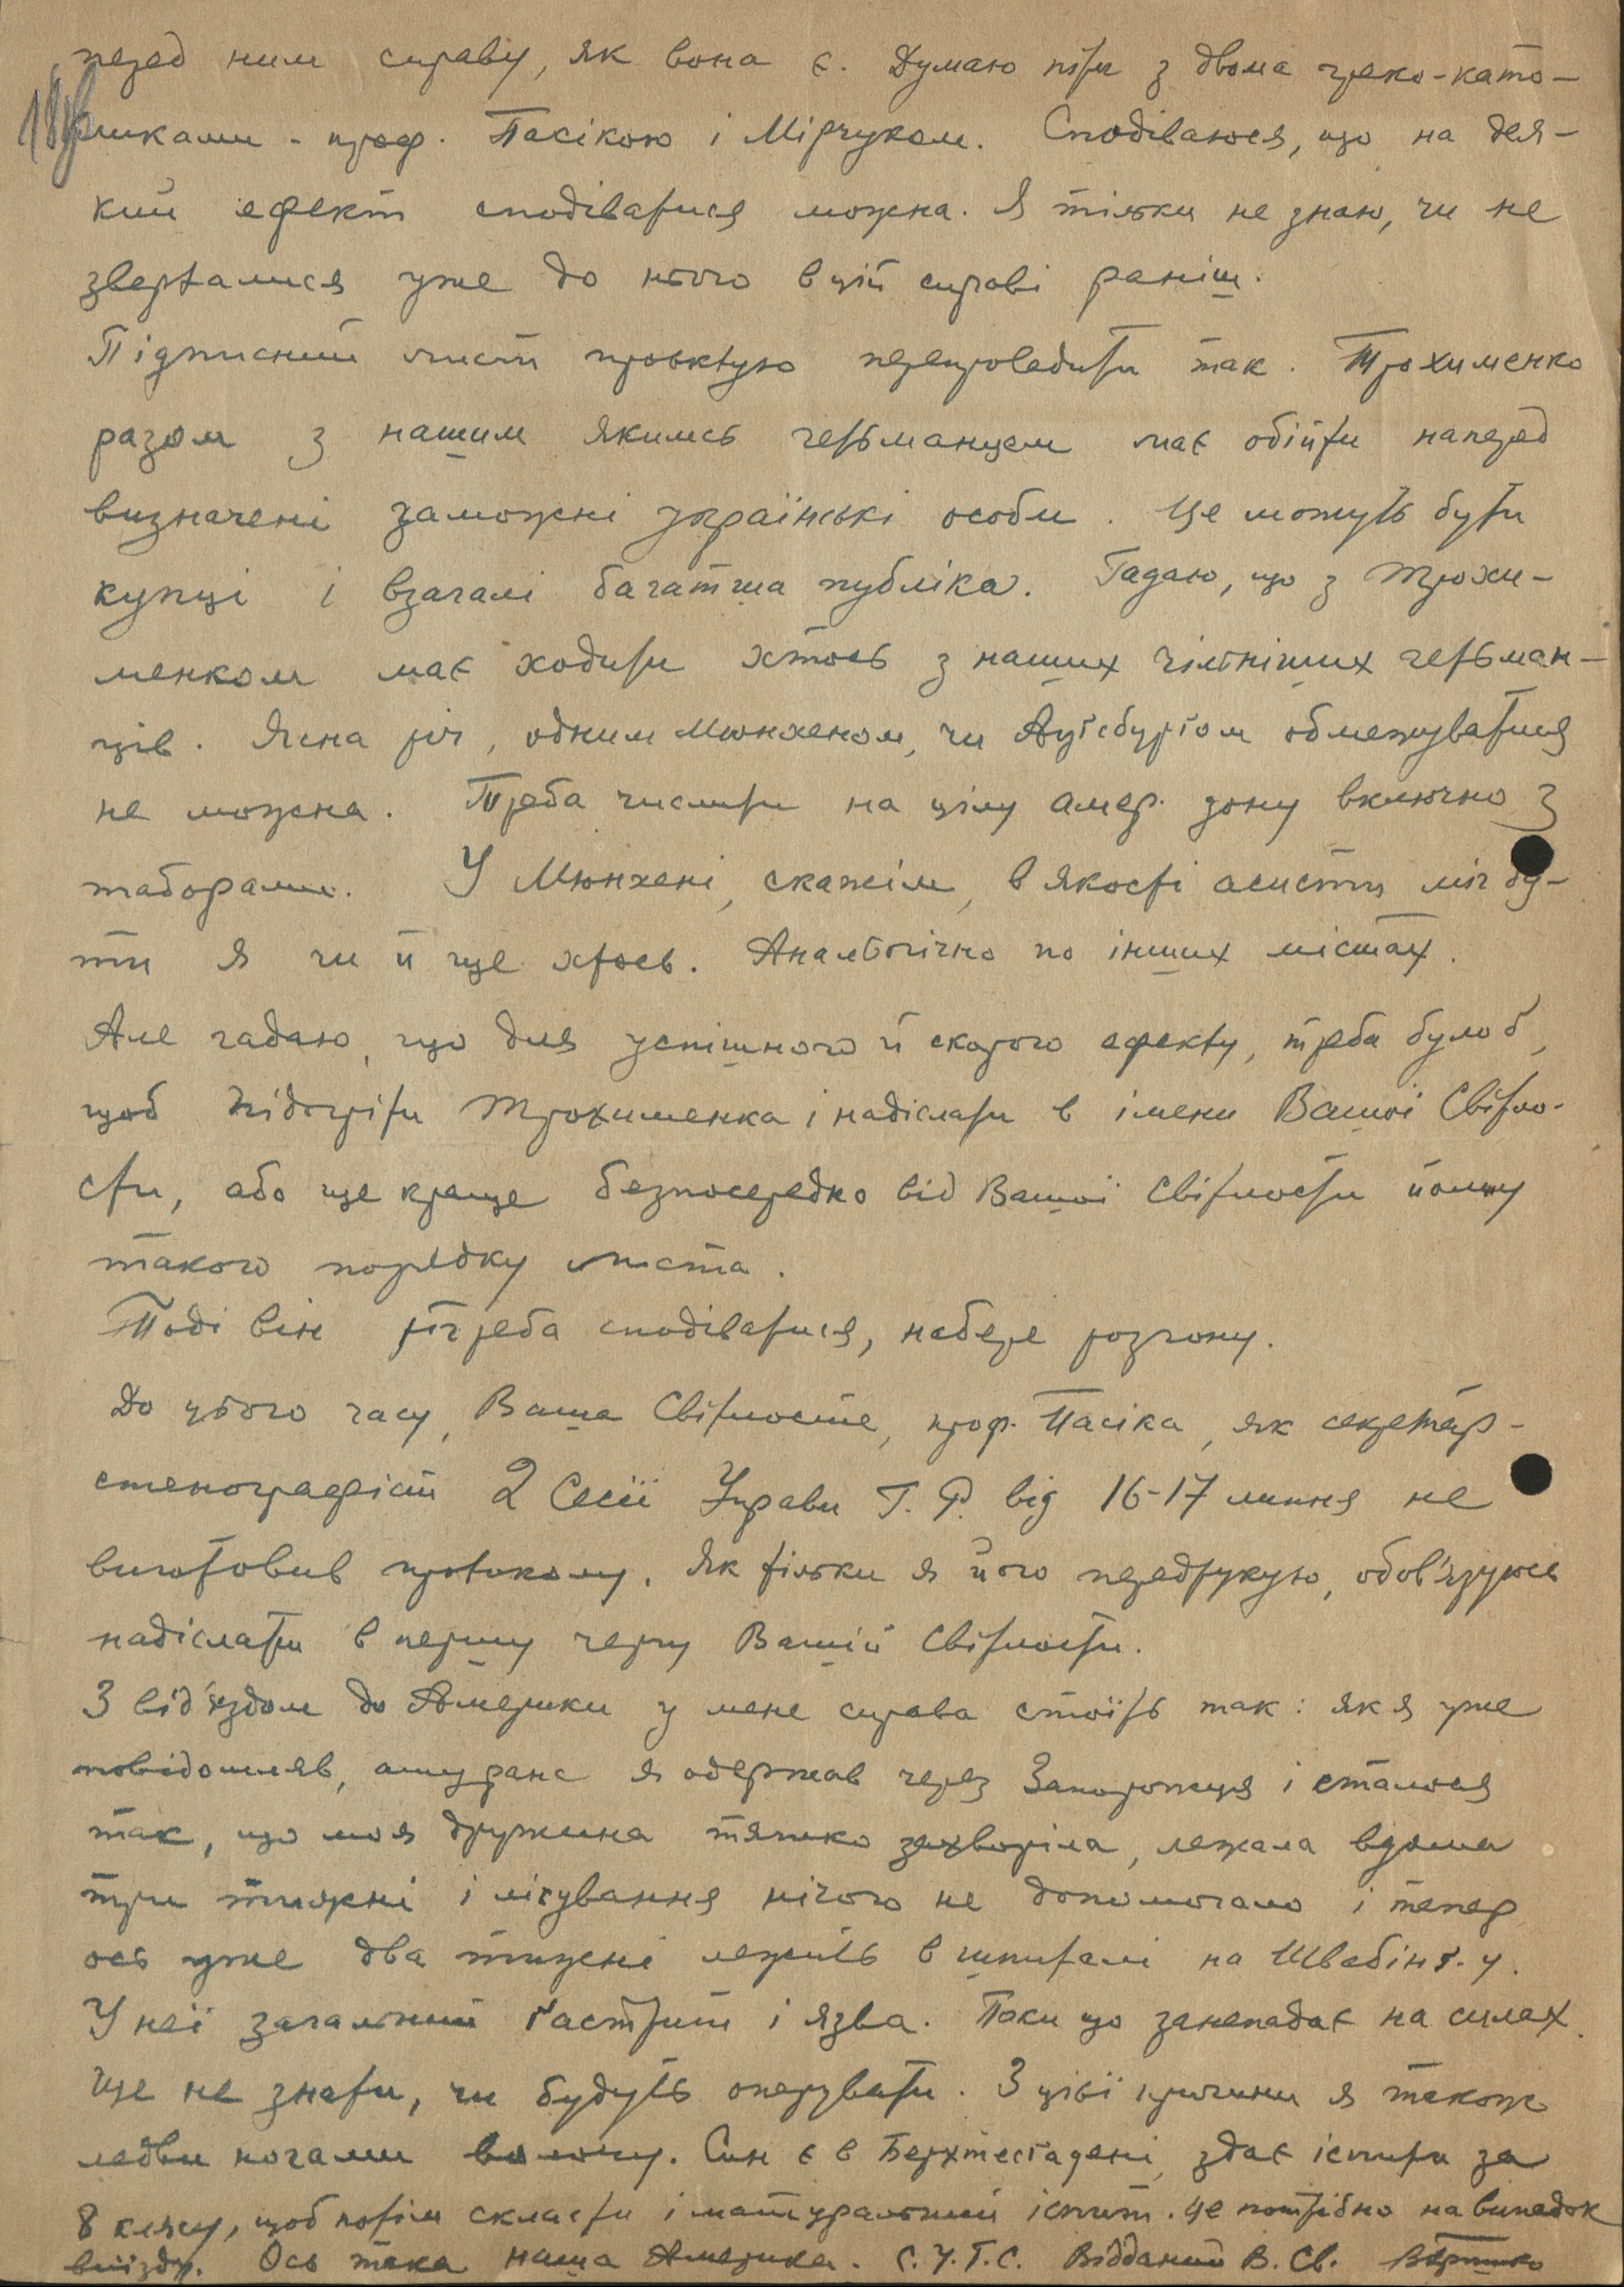 перед ним справу, як вона є. Думаю піти з двома греко-като-
18
ликами - проф. Пасікою і Мірчуком. Сподіваюся, що на дея-
кий ефект сподіватися можна. Я тільки не знаю, чи не
зверталися уже до нього в цій справі раніш.
Підписний лист проєктую перепровадити так. Трохименко
разом з нашим якимсь гетьманцем має обійти наперед
визначені заможні українські особи. Це можуть бути
купці і взагалі багатша публіка. Гадаю, що з Трохи-
менком має ходити хтось з наших чільніших гетьман-
ців. Ясна річ, одним Мюнхеном, чи Авґсбурґом обмежуватися
не можна. Треба числити на цілу амер. зону включно з
таборами. У Мюнхені, скажім, в якості асисти міг бу-
ти я чи й ще хтось. Анальогічно по інших містах.
Але гадаю, що для успішного й скорого ефекту, треба було б,
щоб підогріти Трохименка і надіслати в імени Вашої Світло-
сти, або ще краще безпосередко від Вашої Світлости йому
такого порядку листа.
Тоді він треба сподіватися, набере розгону.
До цього часу, Ваша Світлосте, проф. Пасіка, як секретар-
стенографіст 2 Сесії Управи Г. Р. від 16-17 липня не
виготовив протоколу. Як тільки я його передрукую, обов'язуюсь
надіслати в першу чергу Вашій Світлости.
З від'їздом до Америки у мене справа стоїть так: як я уже
повідомляв, ашуранс я одержав через Запорожця і сталося
так, що моя дружина тяжко захворіла, лежала вдома
три тижні і лікування нічого не допомогало і тепер
ось уже два тижені лежить в шпиталі на Швабінґ-у.
У неї загальний ґастрит і язва. Поки що занепадає на силах.
Ще не знати, чи будуть оперувати. З цієї причини я також
ледви ногами волочу. Син є в Берхтесґадені, здає іспити за
8 клясу, щоб потім скласти і матуральний іспит. Це потрібно на випадок
виїзду. Ось така наша Америка. С.У.Г.С. Відданий В. Св.